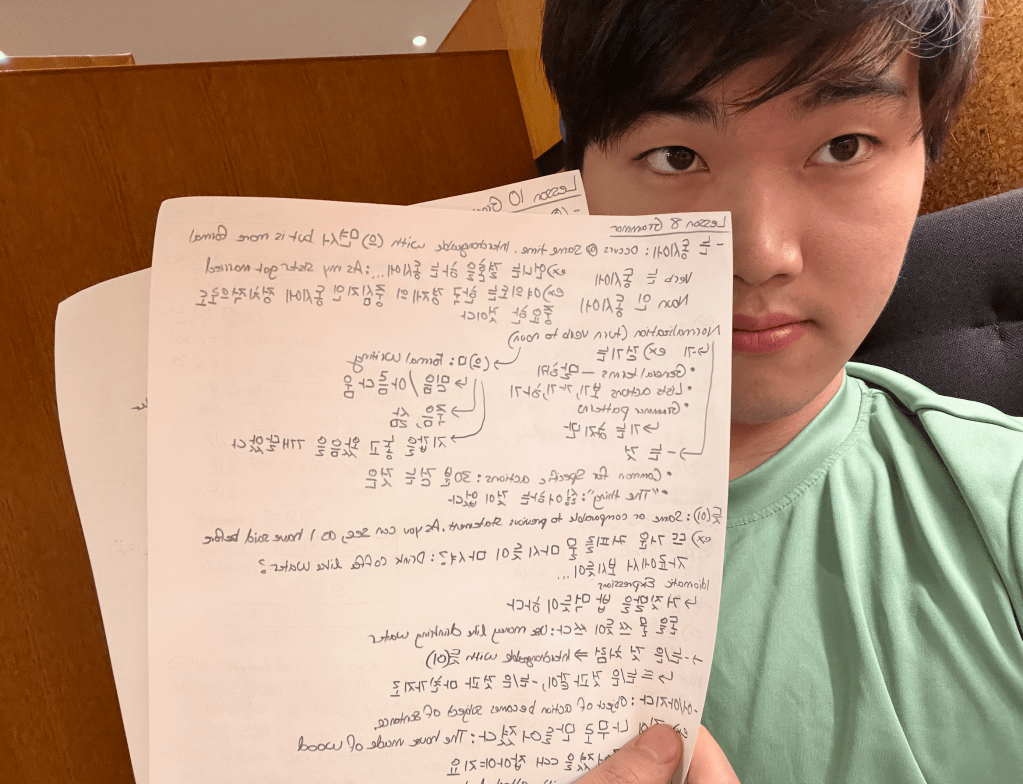 Lesson 10 Gram
Lesson 8 Grammar
- 는 동시에: Occurs @ Same time. Interchangeable with (으)면서 but is more formal
ex) 언니는 결혼을 하는 동시에...: As my sister got married
Verb 는 동시에
Noun 인 동시에
ex) 여의도는 한국 정치의 중심지인 동시에 정치적으로도
중요한 곳이다
Normalization (turn verb to noun)
↳ -기 ex) 걷기는
• General terms — 말하기
• Lists actions 보기, 가기, 하기
• Grammar patterns
↳ 기는 하지만
→ (으)ㅁ: Formal writing
↳ 믿음 / 아름다움
↳ 죽음, 삶
↳ 지갑을 놓고 왔음을 깨달았다
→ - 는 것
• Common for Specific actions: 30분 걷는 것은
• "The thing": 참여하는 것이 없다
듯(이): Same or comparable to previous statement. As you can see, as I have said before
ex) 뜨거운 커피를 물 마시듯이 마셔?: Drink coffee like water?
자료에서 보시듯이...
Idiomatic Expressions
↳ 거짓말을 밥 먹듯이 하다
돈을 물 쓰듯이 쓰다: Use money like drinking water
→ -는/은 것처럼 ⇒ Interchangeable with 듯(이)
↳ = 는/은 것과 같이, -는/은 것과 마찬가지로
- 어/아지다: Object of action becomes subject of sentence
ex) 집이 나무로 만들어졌다: The house made of wood
때 잡아야지요